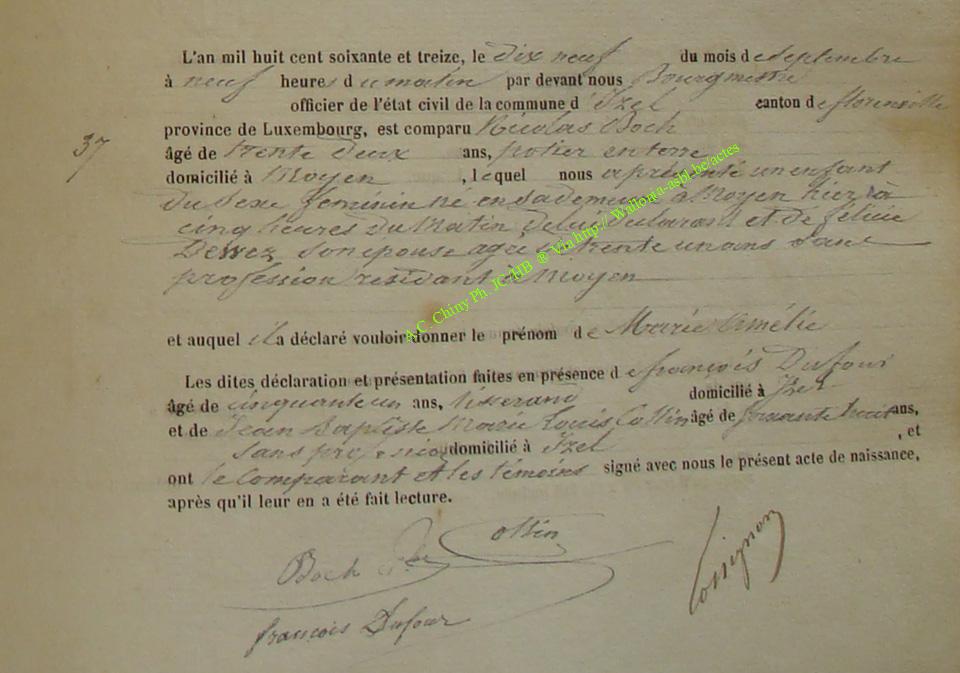 L'an mil huit cent soixante et treize, le dix neuf du mois de septembre
à neuf heures du matin par devant nous Bourgmestre
officier de l'état civil de la commune d'Izel canton de florenville
province de Luxembourg, est comparu Nicolas Boch
37
âgé de trente deux ans, potier en terre
domicilié à Moyen, lequel nous a présenté un enfant
du sexe feminin né en sa demeure à Moyen hier à
cinq heures du matin de lui déclarant et de felicie
Dewez son épouse agée de trente un ans sans
profession résidant à Moyen
et auquel il a déclaré vouloir donner le prénom de Marie Amélie
Les dites déclaration et présentation faites en présence de françois Dufour
âgé de cinquante un ans, tisserand domicilié à Izel
et de Jean Baptiste Marie Louis Collin âgé de soixante huit ans,
sans profession domicilié à Izel, et
ont le comparant et les témoins signé avec nous le présent acte de naissance,
après qu'il leur en a été fait lecture.
Collin
Boch
françois Dufour
Lossignon
A.C. Chiny Ph. JC/HB ® Via http:// Wallonia-asbl.be/actes